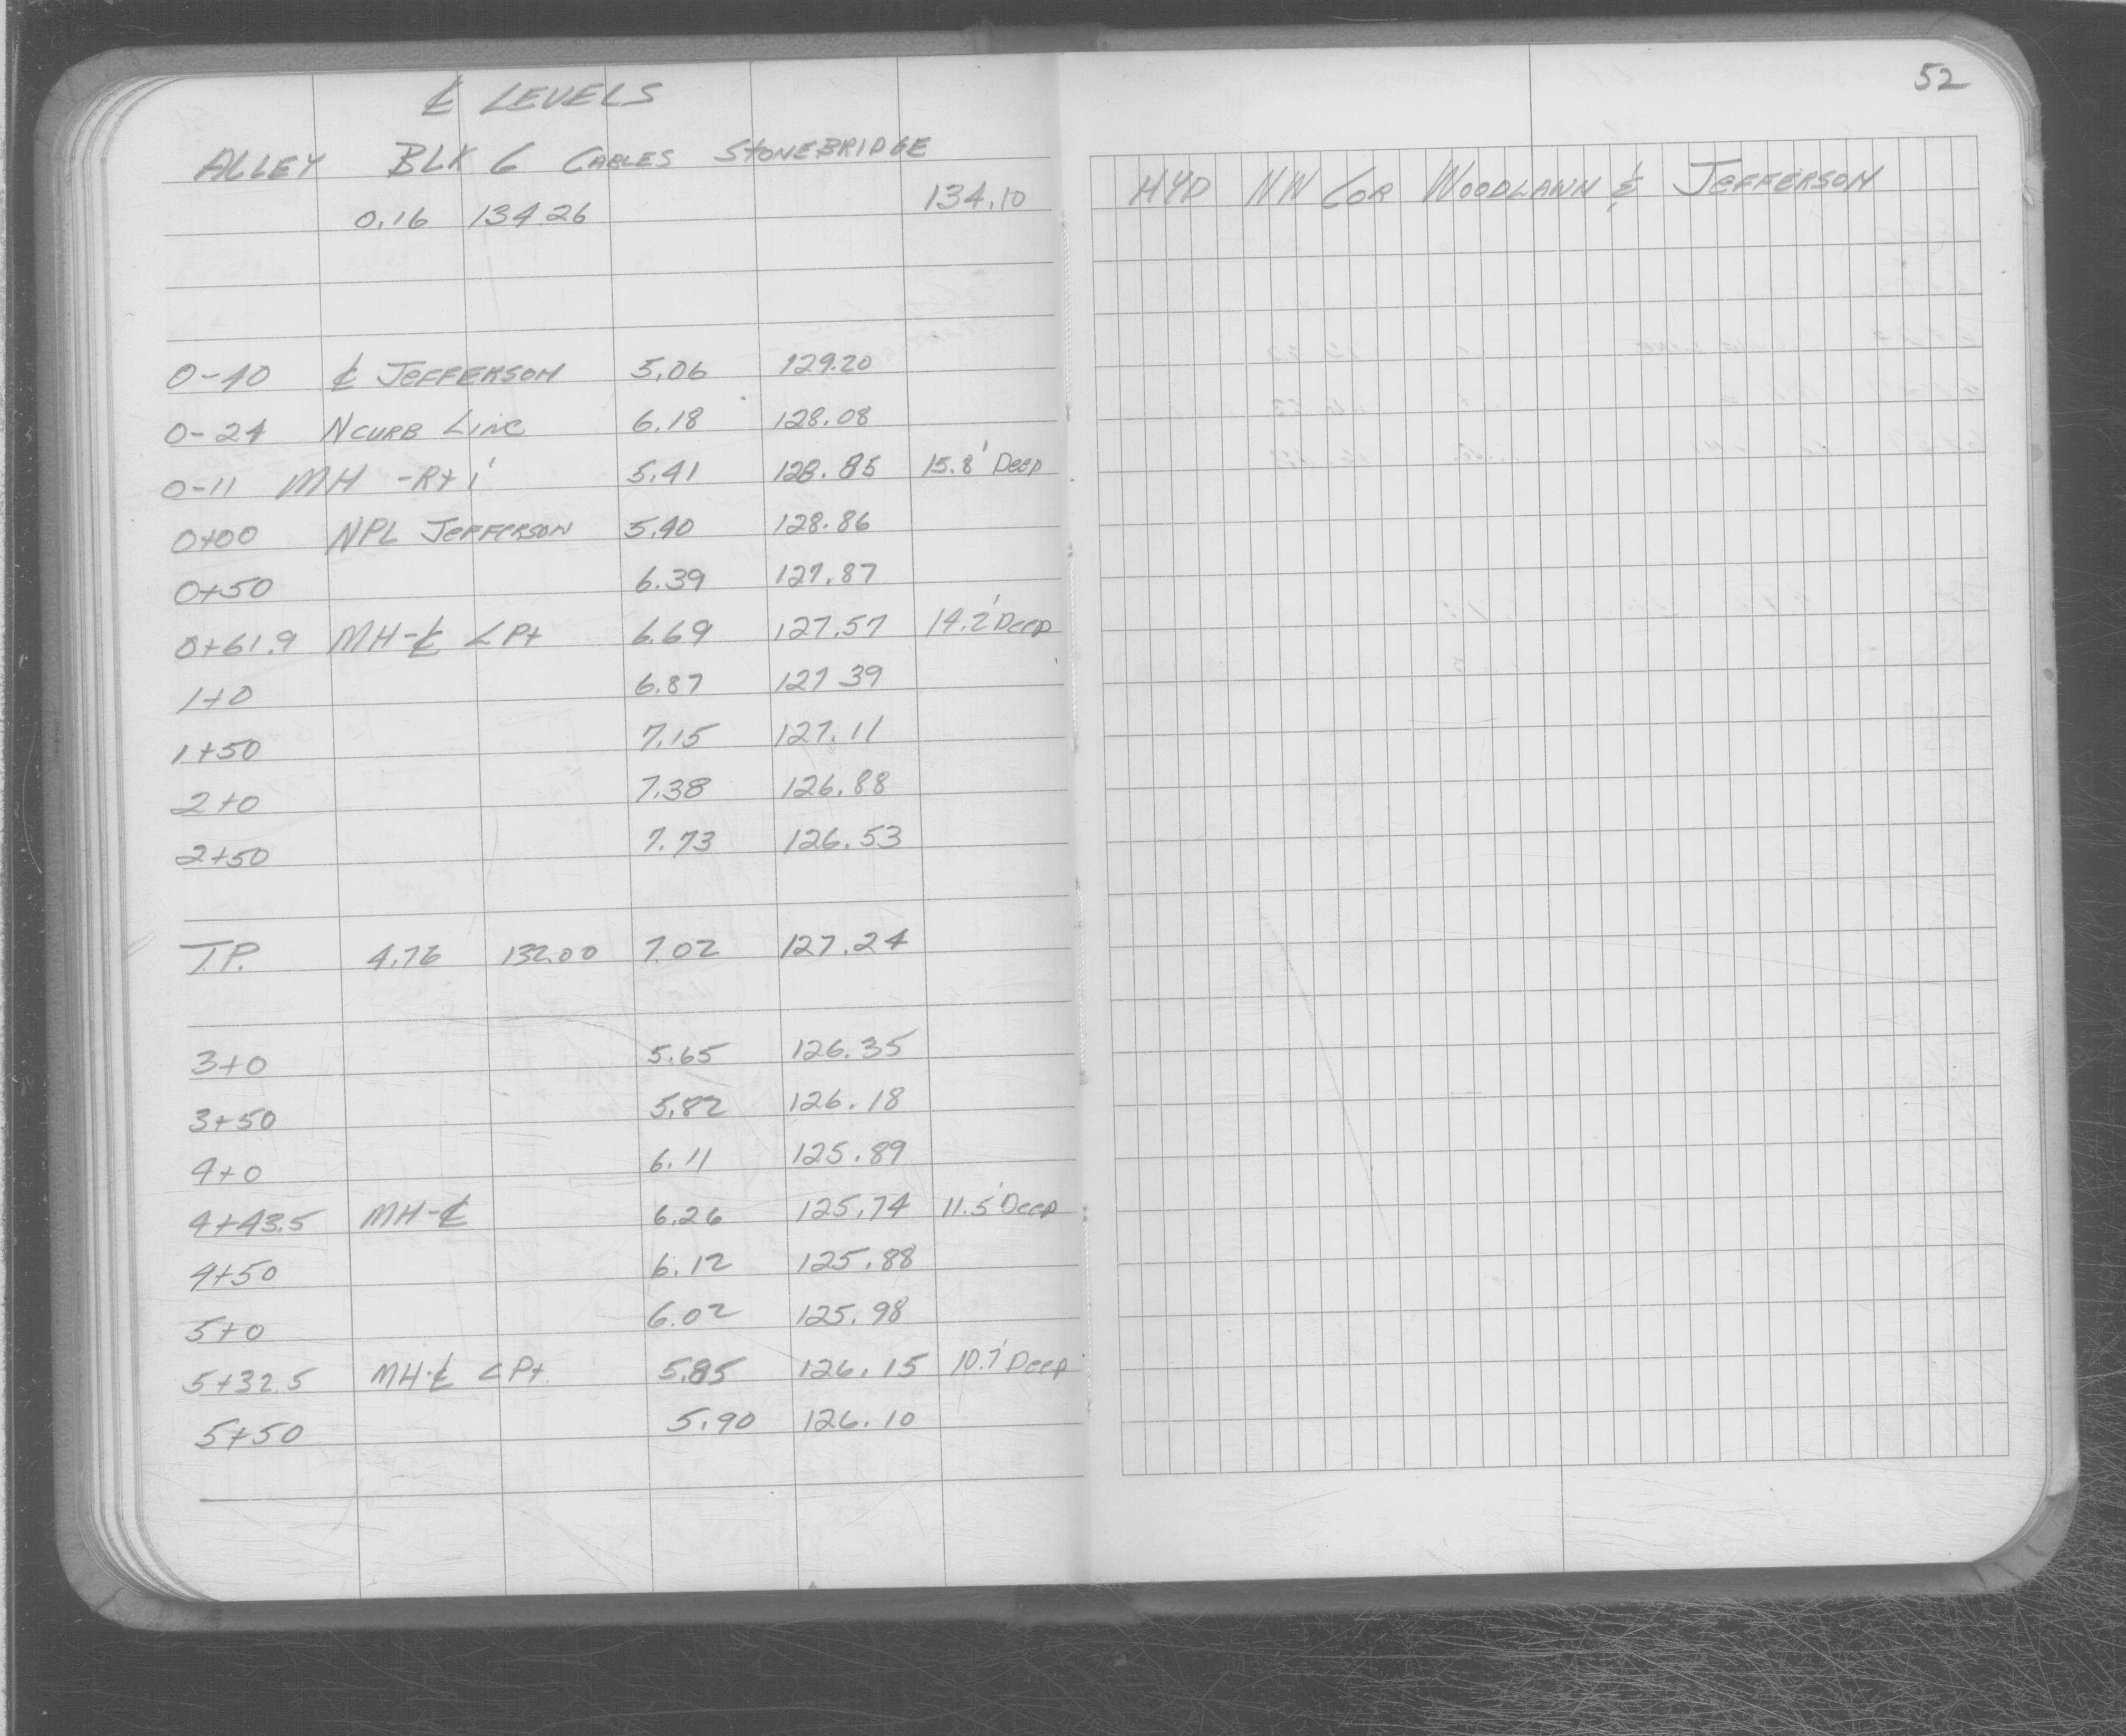 ℄ LEVELS
ALLEY BLK 6 CABLES STONEBRIDGE
0.16 134.26 134.10
0-40 ℄ JEFFERSON 5.06 129.20
0-24 N CURB LINE 6.18 128.08
0-11 MH -Rt 1' 5.41 128.85 15.8' Deep
0+00 NPL JEFFERSON 5.40 128.86
0+50 6.39 127.87
0+61.9 MH-℄ ∠ Pt 6.69 127.57 14.2' Deep
1+0 6.87 127 39
1+50 7.15 127.11
2+0 7.38 126.88
2+50 7.73 126.53
T.P. 4.76 132.00 7.02 127.24
3+0 5.65 126.35
3+50 5.82 126.18
4+0 6.11 125.89
4+43.5 MH-℄ 6.26 125.74 11.5' Deep
4+50 6.12 125.88
5+0 6.02 125.98
5+32.5 MH-℄ ∠ Pt. 5.85 126.15 10.7' Deep
5+50 5.90 126.10
52
HYD NW COR WOODLAWN & JEFFERSON